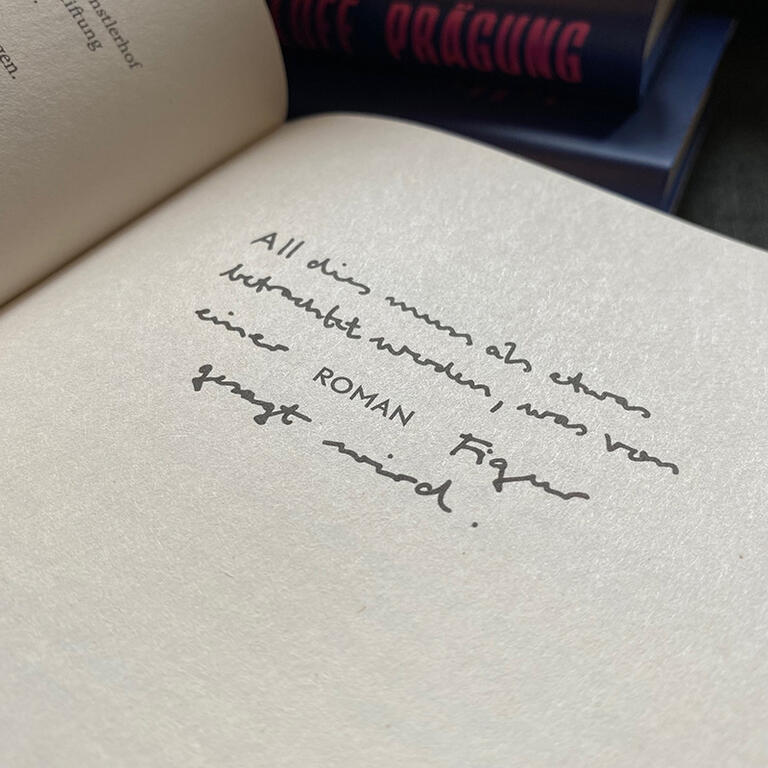 nstlerhof
tiftung
gen.
PRÄGUNG
All dies muss als etwas
betrachtet werden, was von
einer ROMAN Figur
gesagt wird.